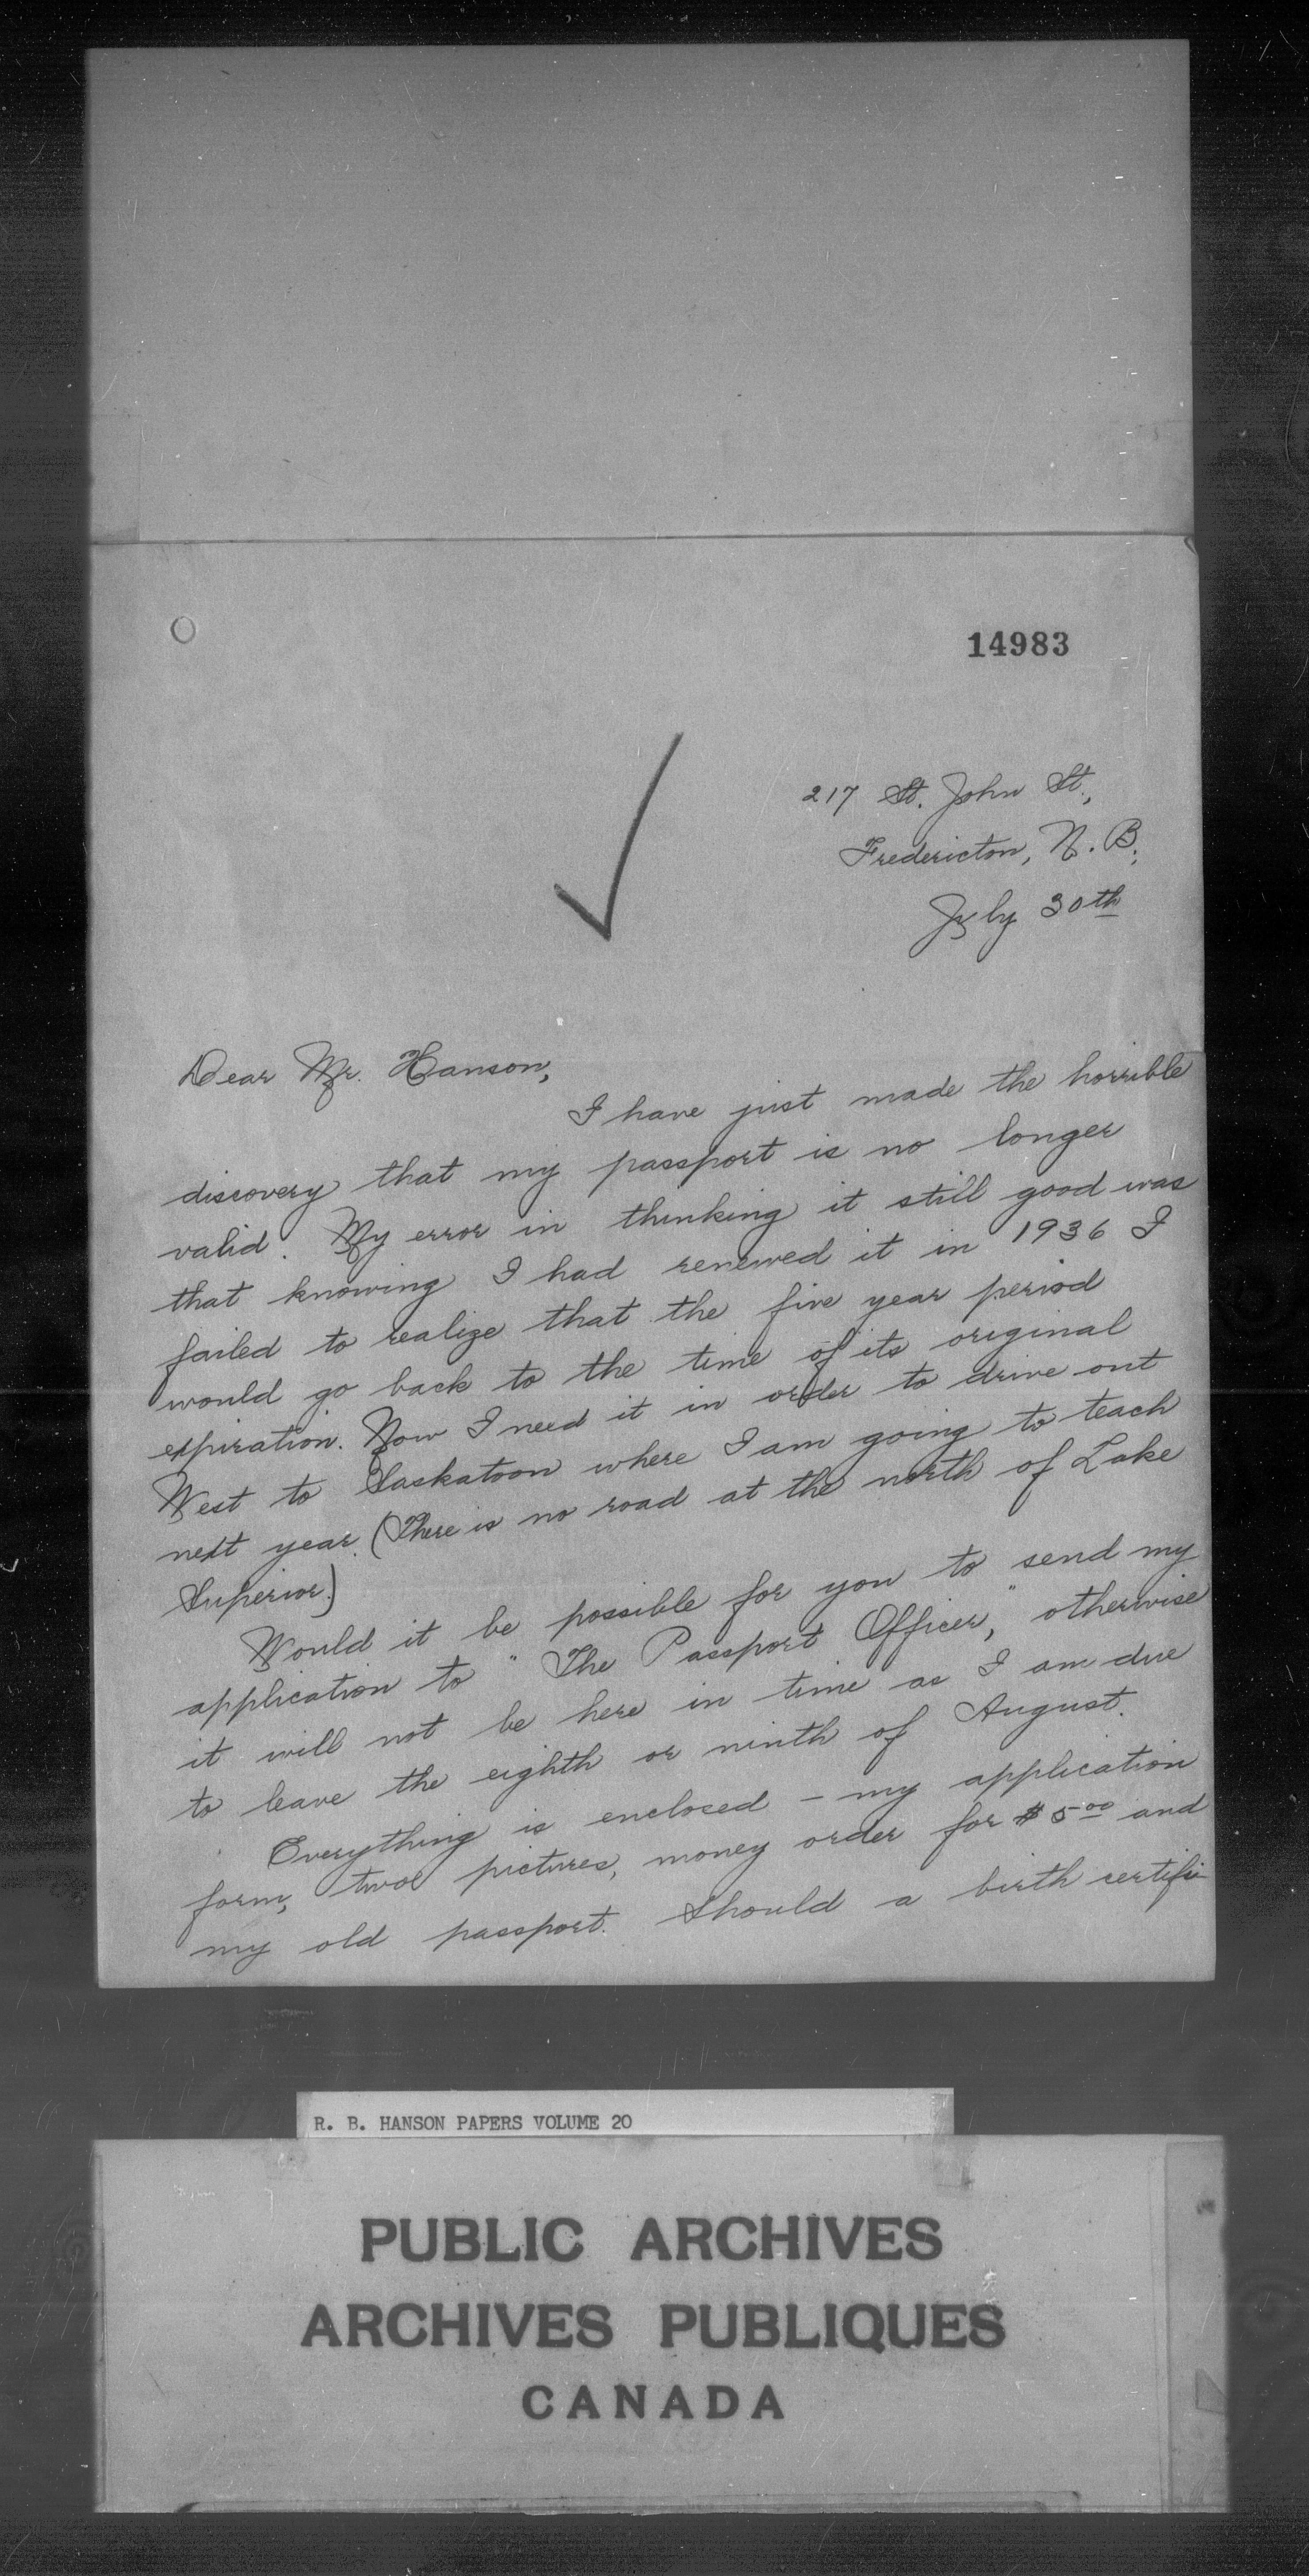 14983
217 St. John St.,
Fredericton, N. B.,
July 30th
Dear Mr. Hanson,
I have just made the horrible
discovery that my passport is no longer
valid. My error in thinking it still good was
that knowing I had renewed it in 1936 I
failed to realize that the five year period
would go back to the time of its original
expiration. Now I need it in order to drive out
West to Saskatoon where I am going to teach
next year. (There is no road at the north of Lake
Superior.)
Would it be possible for you to send my
application to "The Passport Officer," otherwise
it will not be here in time as I am due
to leave the eighth or ninth of August.
Everything is enclosed - my application
form, two pictures, money order for $5.00 and
my old passport. Should a birth certifi-
R. B. HANSON PAPERS VOLUME 20
PUBLIC ARCHIVES
ARCHIVES PUBLIQUES
CANADA